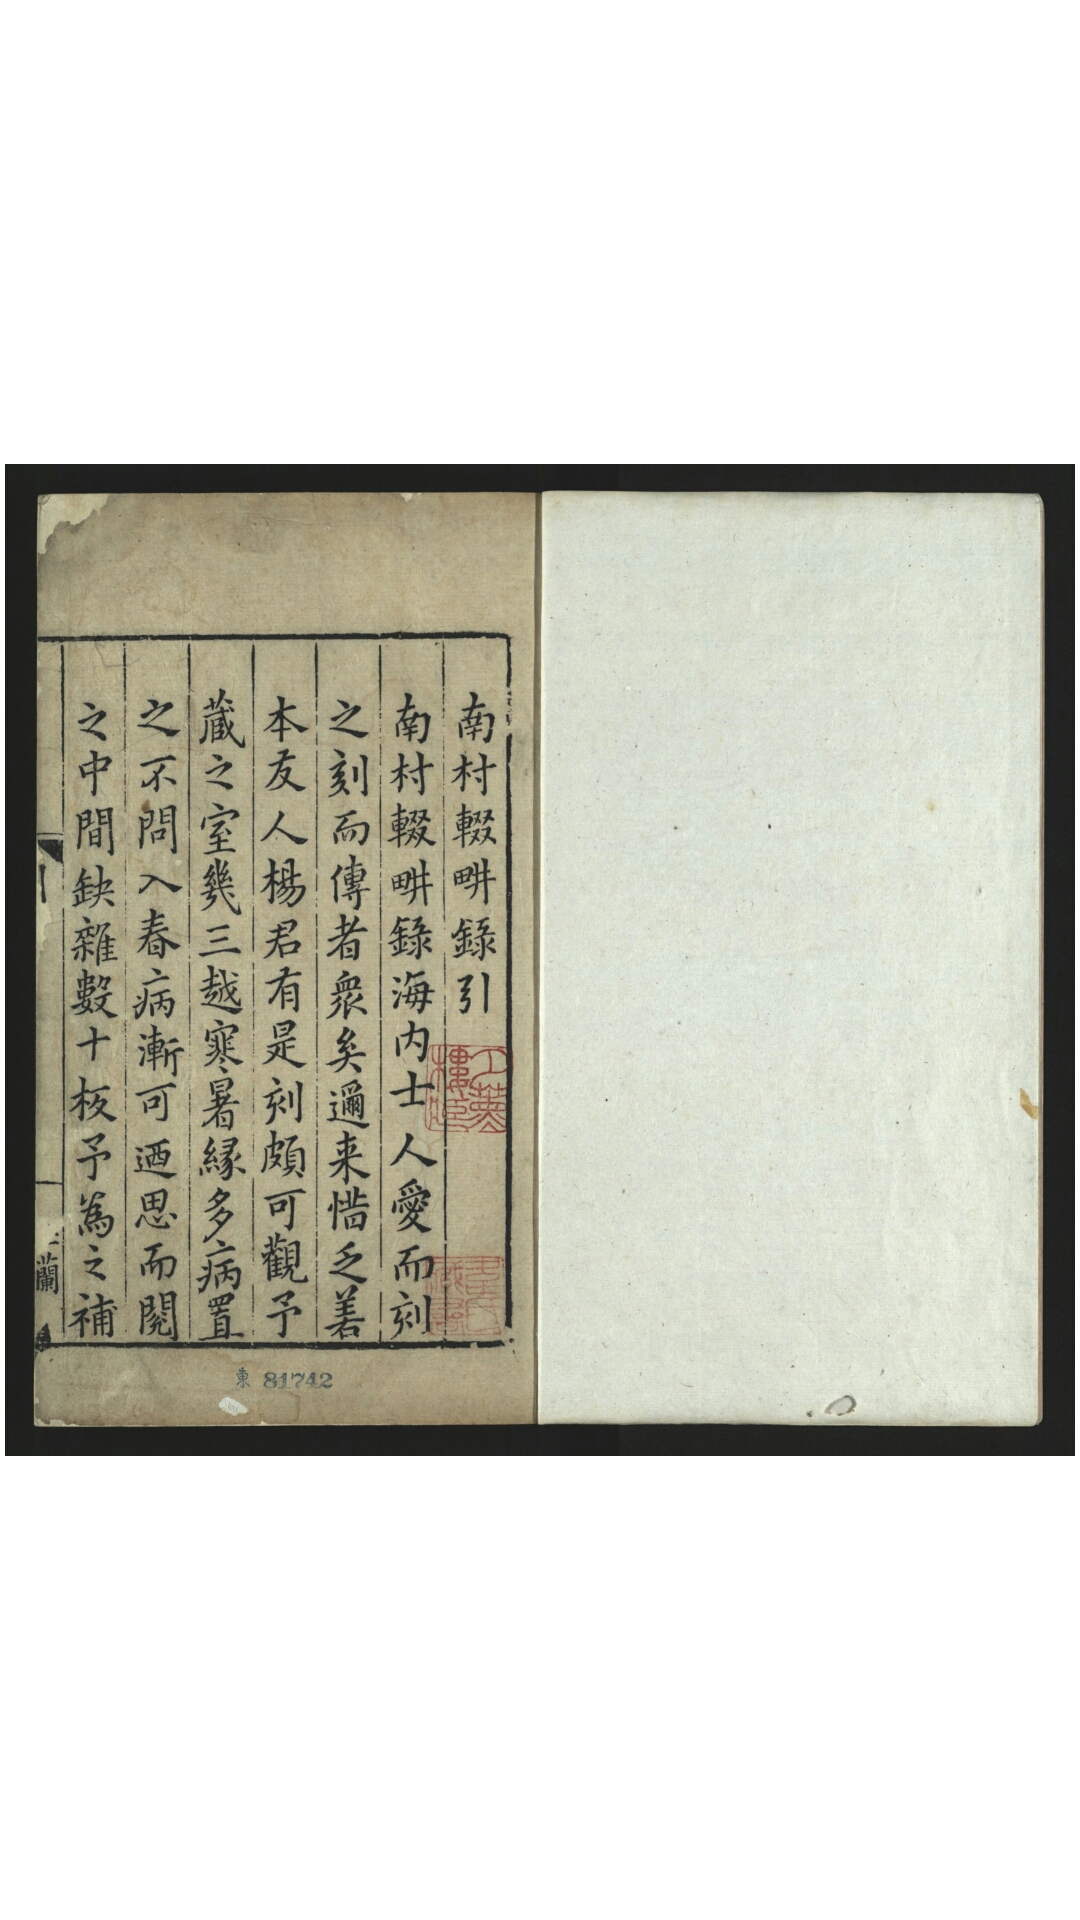 南村輟畊錄引
南村輟畊錄海内士人愛而刻
之刻而傳者衆矣邇来惜乏善
本友人楊君有是刻頗可觀予
蔵之室幾三越寒暑緣多病置
之不問入春病漸可迺思而閱
之中間缺雜數十板予為之補
蘭
東 81742